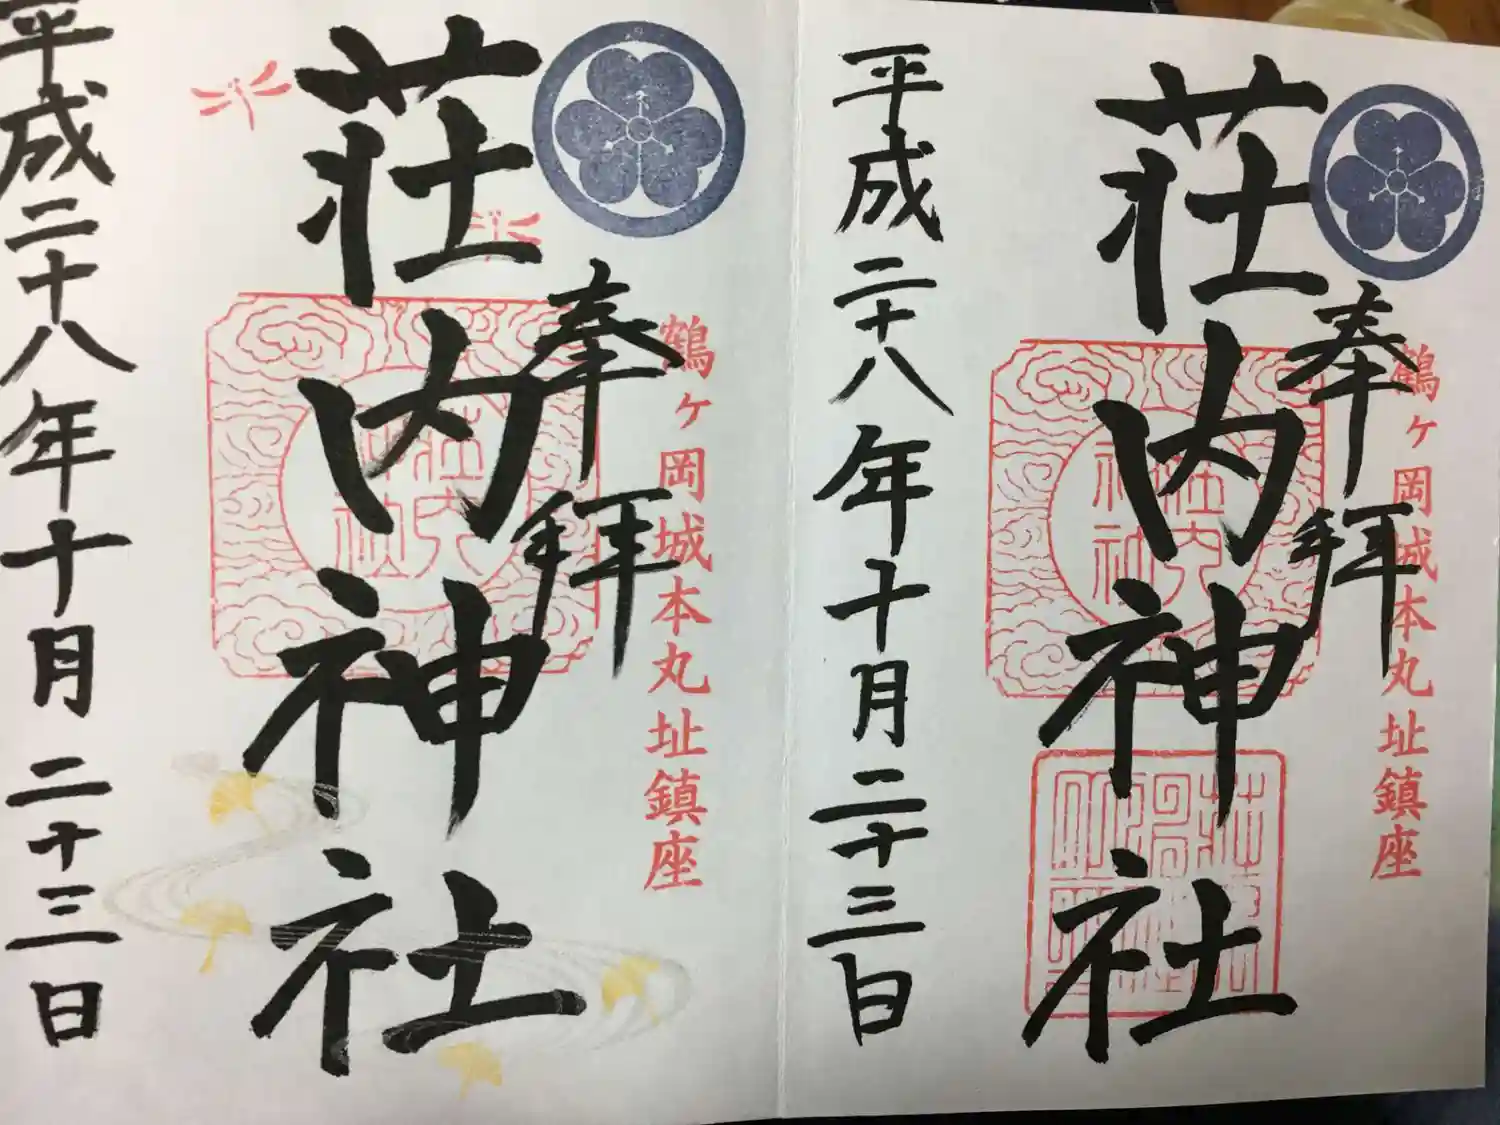 鶴ヶ岡城本丸址鎮座
奉拝
荘内神社
荘内神社
平成二十八年十月二十三日
鶴ヶ岡城本丸址鎮座
奉拝
荘内神社
荘内神社
平成二十八年十月二十三日